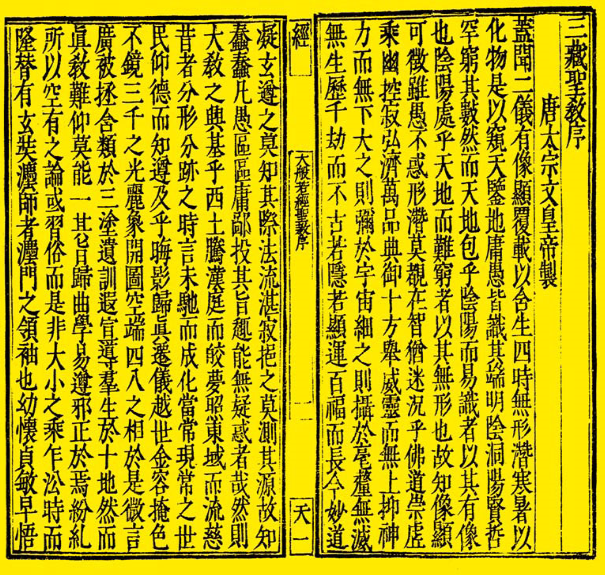 三藏聖教序
唐太宗文皇帝製
蓋聞二儀有像顯覆載以含生四時無形潛寒暑以
化物是以窺天鑒地庸愚皆識其端明陰洞陽賢哲
罕窮其數然而天地包乎陰陽而易識者以其有像
也陰陽處乎天地而難窮者以其無形也故知像顯
可徵雖愚不惑形潛莫覩在智猶迷況乎佛道崇虛
乘幽控寂弘濟萬品典御十方舉威靈而無上抑神
力而無下大之則彌於宇宙細之則攝於毫釐無滅
無生歷千劫而不古若隱若顯運百福而長今妙道
經
大般若經聖教序
天一
凝玄遵之莫知其際法流湛寂挹之莫測其源故知
蠢蠢凡愚區區庸鄙投其旨趣能無疑惑者哉然則
大教之興基乎西土騰漢庭而皎夢照東域而流慈
昔者分形分跡之時言未馳而成化當常現常之世
民仰德而知遵及乎晦影歸眞遷儀越世金容掩色
不鏡三千之光麗象開圖空端四八之相於是微言
廣被拯含類於三塗遺訓遐宣導羣生於十地然而
眞教難仰莫能一其旨歸曲學易遵邪正於焉紛糺
所以空有之論或習俗而是非大小之乘乍沿時而
隆替有玄奘灋師者灋門之領袖也幼懷貞敏早悟